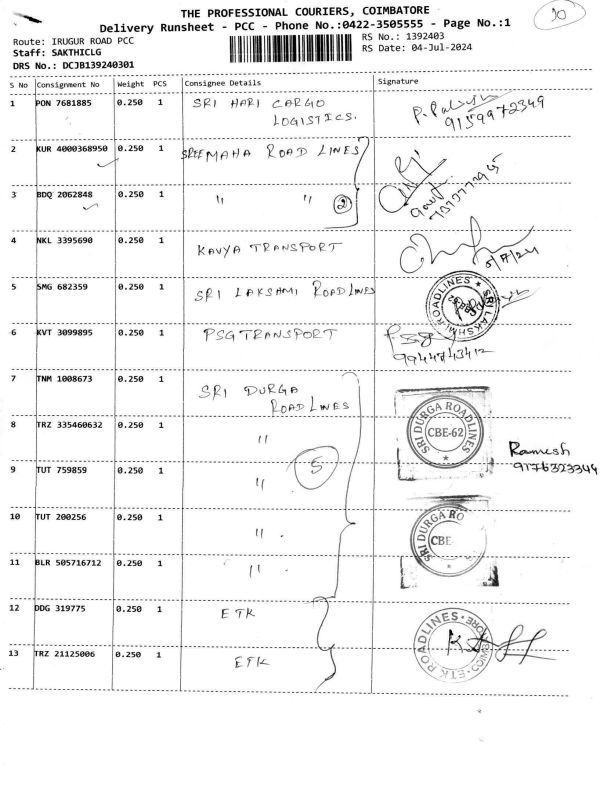 THE PROFESSIONAL COURIERS, COIMBATORE
Delivery Runsheet - PCC - Phone No.:0422-3505555 - Page No.:1
Route: IRUGUR ROAD PCC
RS No.: 1392403
Staff: SAKTHICLG
RS Date: 04-Jul-2024
DRS No.: DCJB139240301
S No Consignment No Weight PCS Consignee Details Signature
1 PON 7681885 0.250 1 SRI HARI CARGO
LOGISTICS.
9159972349
2 KUR 4000368950 0.250 1 SREE MAHA ROAD LINES
3 BDQ 2062848 0.250 1 " " 2
4 NKL 3395690 0.250 1 KAVYA TRANSPORT
5/7/24
5 SMG 682359 0.250 1 SRI LAKSHMI ROAD LINES
SRI LAKSHMI ROADLINES
6 KVT 3099895 0.250 1 PSG TRANSPORT
9944743412
7 TNM 1008673 0.250 1 SRI DURGA
ROAD LINES
8 TRZ 335460632 0.250 1 "
SRI DURGA ROADLINES
CBE-62
Ramesh
9176323344
9 TUT 759859 0.250 1 " 5
10 TUT 200256 0.250 1 "
SRI DURGA RO
CBE-
11 BLR 505716712 0.250 1 "
12 DDG 319775 0.250 1 ETK
ETK ROADLINES
13 TRZ 21125006 0.250 1 ETK